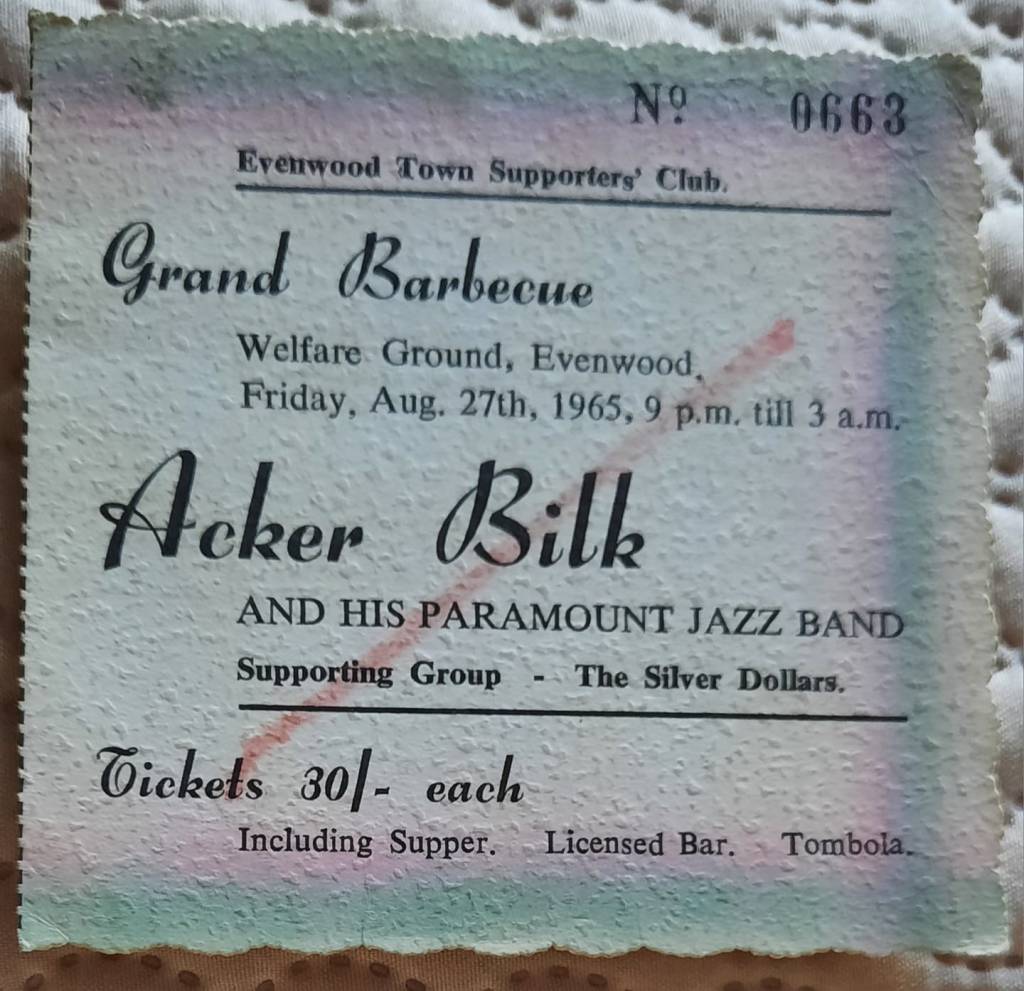 Nº 0663
Evenwood Town Supporters' Club.
Grand Barbecue
Welfare Ground, Evenwood,
Friday, Aug. 27th, 1965, 9 p.m. till 3 a.m.
Acker Bilk
AND HIS PARAMOUNT JAZZ BAND
Supporting Group - The Silver Dollars.
Tickets 30/- each
Including Supper. Licensed Bar. Tombola.